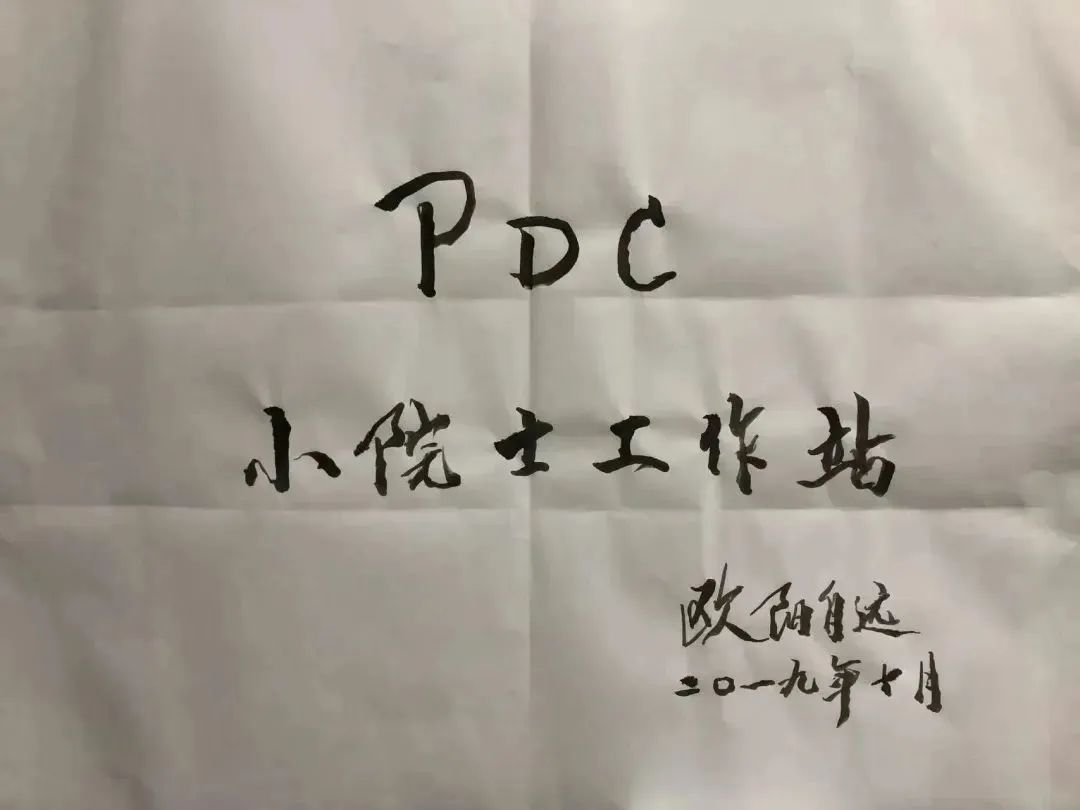 PDC
小院士工作站
欧阳自远
二〇一九年十月